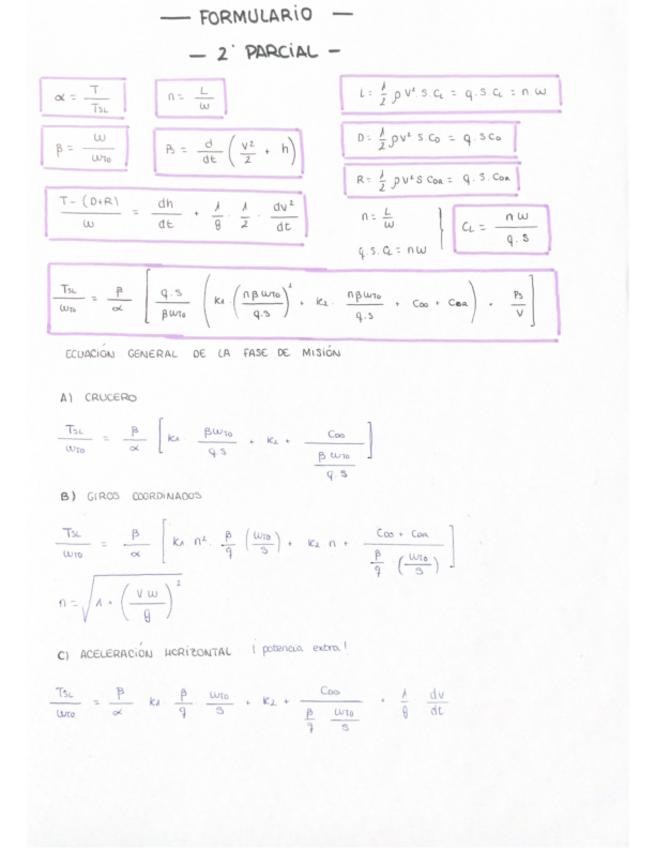 — FORMULARIO —
— 2° PARCIAL —
α = T / T_SL
n = L / W
L = 1/2 ρ V² . S . C_L = q . S C_L = n W
β = W / W_TO
P_S = d/dt ( V²/2 + h )
D = 1/2 ρ V² . S . C_D = q . S C_D
R = 1/2 ρ V² S C_DR = q . S . C_DR
T - (D+R) / W = dh/dt + 1/g . 1/2 . dV²/dt
n = L/W
q . S . C_L = n W
C_L = n W / q . S
T_SL / W_TO = β/α [ q . S / β W_TO ( K1 . ( n β W_TO / q . S )² + K2 . n β W_TO / q . S + C_D0 + C_DR ) + P_S / V ]
ECUACIÓN GENERAL DE LA FASE DE MISIÓN
A) CRUCERO
T_SL / W_TO = β/α [ K1 . β W_TO / q S + K2 + C_D0 / ( β W_TO / q . S ) ]
B) GIROS COORDINADOS
T_SL / W_TO = β/α [ K1 n² . β/q ( W_TO / S ) + K2 n + C_D0 + C_DR / ( β/q . ( W_TO / S ) ) ]
n = √ 1 + ( V W / g )²
C) ACELERACIÓN HORIZONTAL ¡ potencia extra !
T_SL / W_TO = β/α K1 . β/q W_TO / S + K2 + C_D0 / ( β/q W_TO / S ) + 1/g dV/dt